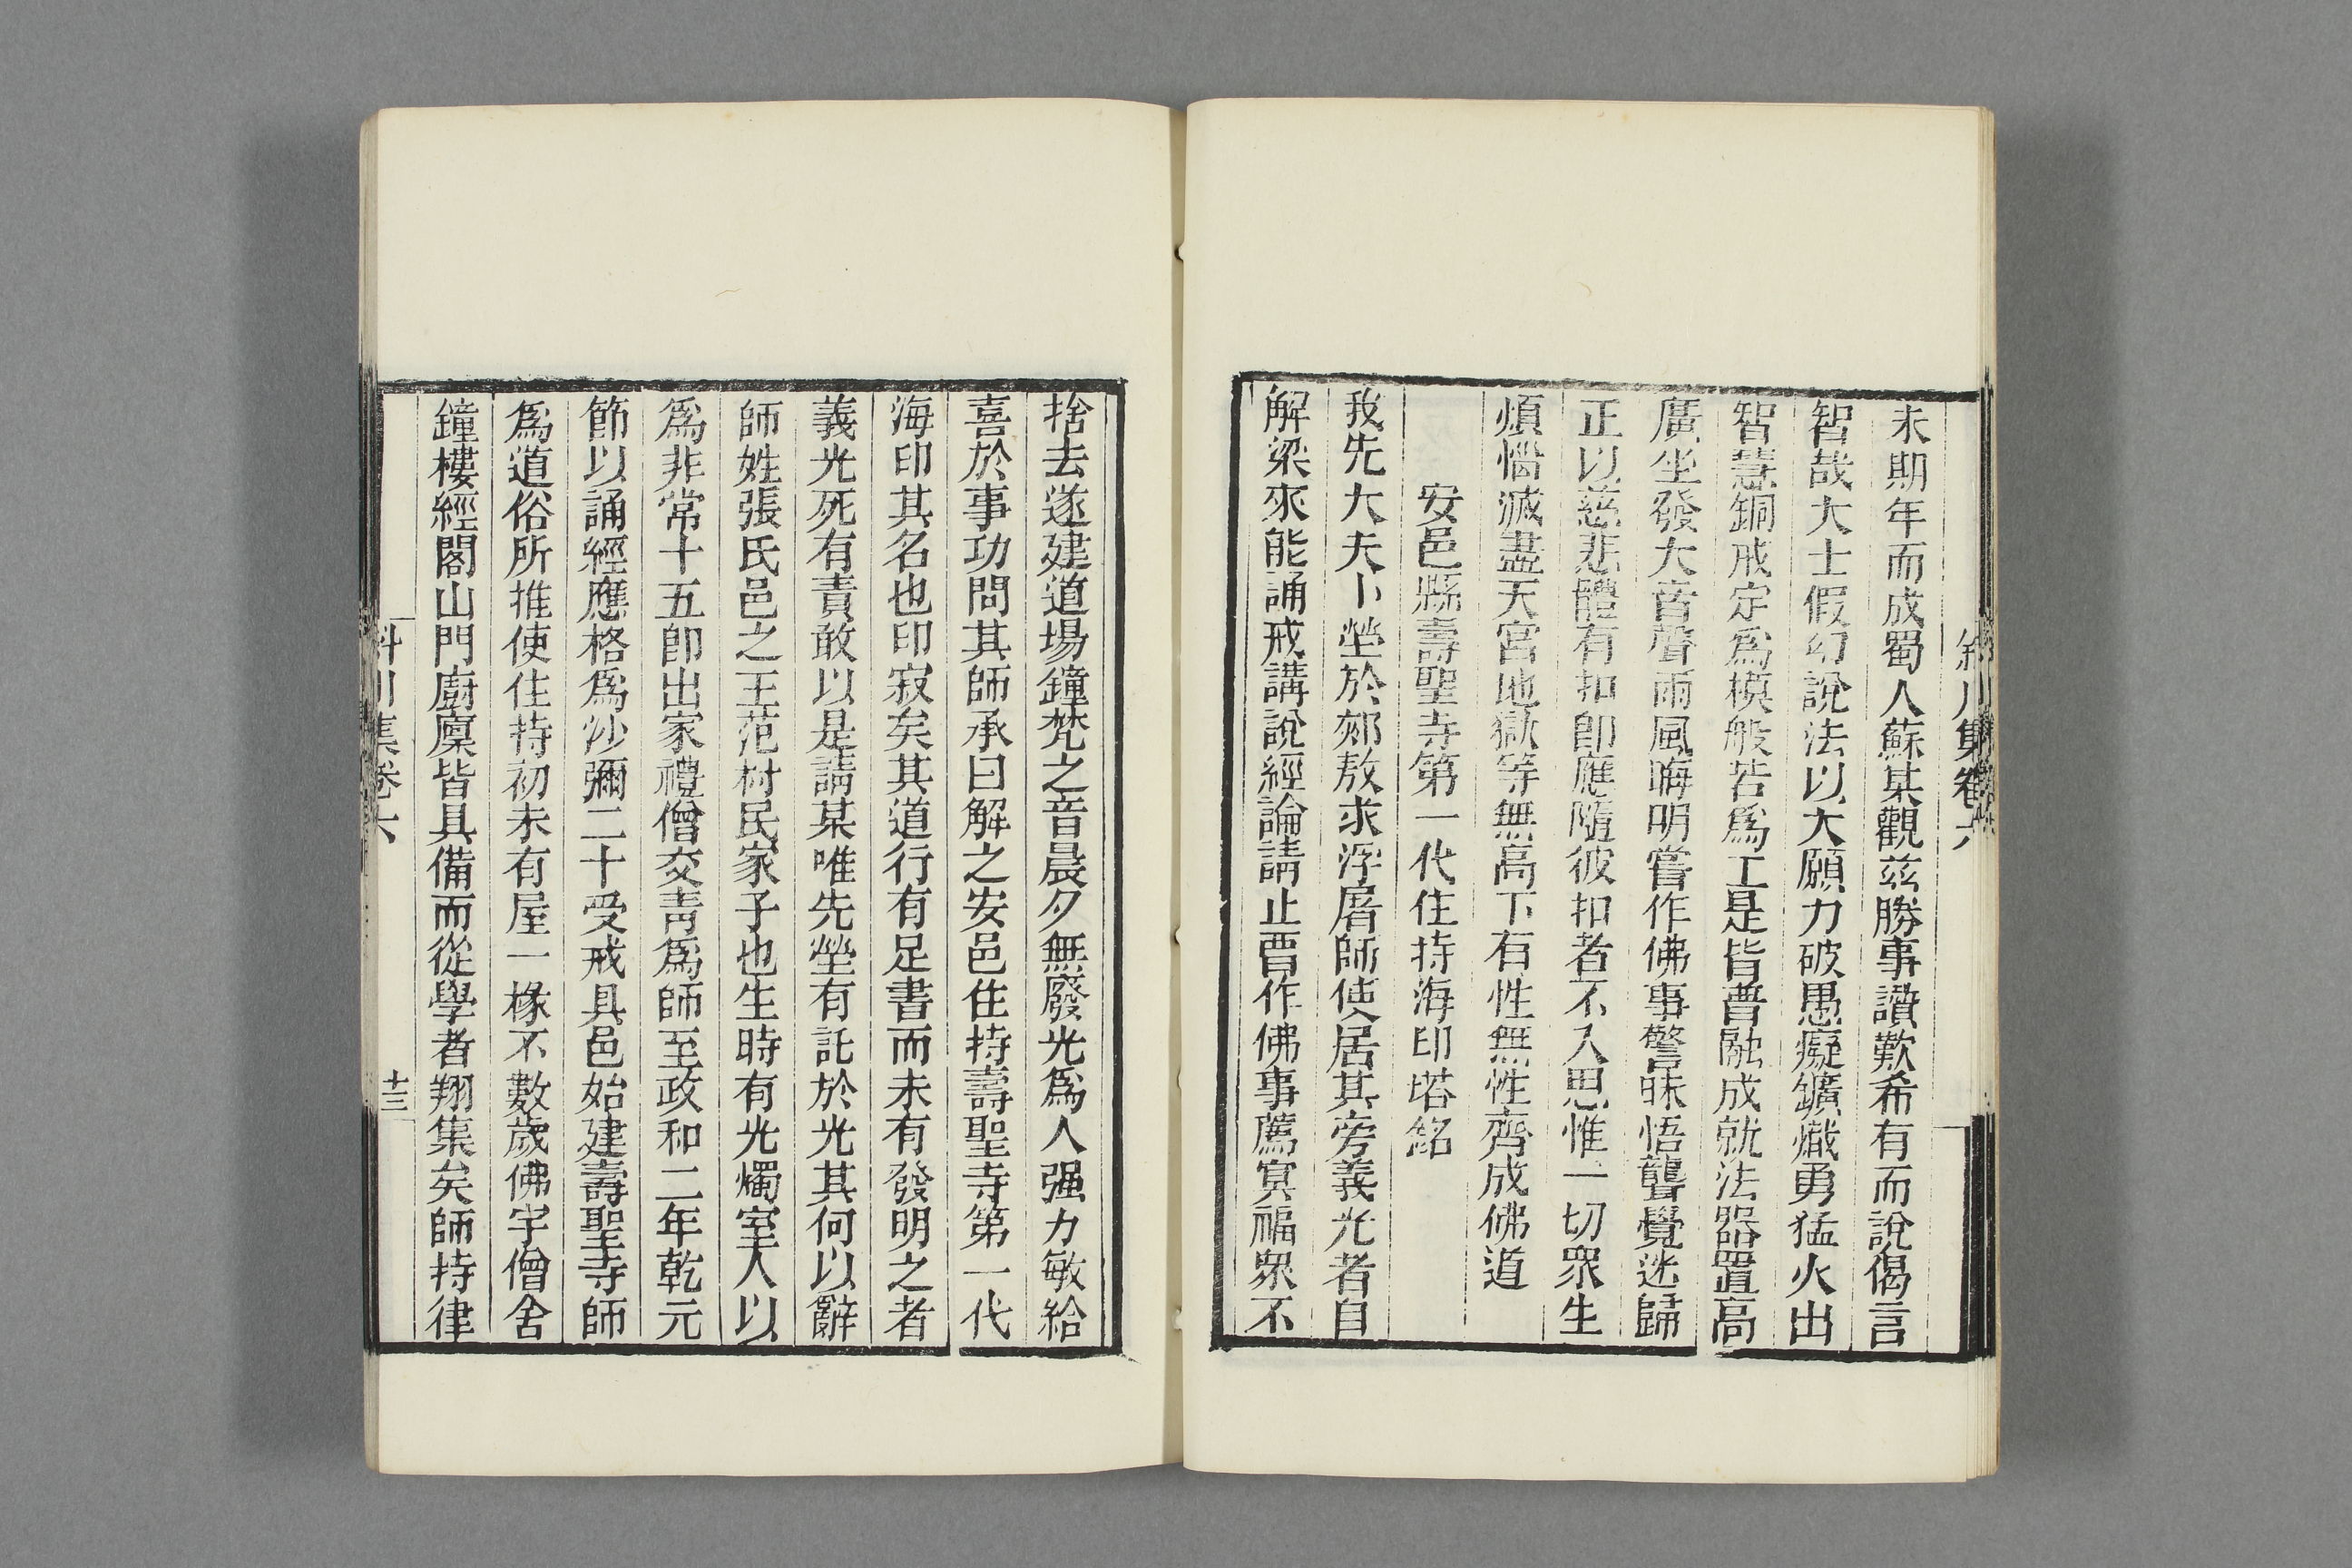 未期年而成蜀人蘇某觀兹勝事讚歎希有而說偈言
智哉大士假幻說法以大願力破愚癡鑛熾勇猛火出
智慧銅戒定爲模般若爲工是皆普融成就法器置高
廣坐發大音聲雨風晦明嘗作佛事警昧悟聾覺迷歸
正以慈悲體有扣卽應隨彼扣者不入思惟一切眾生
煩惱滅盡天宮地獄等無高下有性無性齊成佛道
安邑縣壽聖寺第一代住持海印塔銘
我先大夫卜塋於郟敖求浮屠師使居其旁義光者自
解梁來能誦戒講說經論請止畱作佛事薦冥福眾不
捨去遂建道場鐘梵之音晨夕無廢光爲人强力敏給
喜於事功問其師承曰解之安邑住持壽聖寺第一代
海印其名也印寂矣其道行有足書而未有發明之者
義光死有責敢以是請某唯先塋有託於光其何以辭
師姓張氏邑之王范村民家子也生時有光燭室人以
爲非常十五卽出家禮僧交靑爲師至政和二年乾元
節以誦經應格爲沙彌二十受戒具邑始建壽聖寺師
爲道俗所推使住持初未有屋一椽不數歲佛宇僧舍
鐘樓經閣山門廚廩皆具備而從學者翔集矣師持律
斜川集卷六
十三